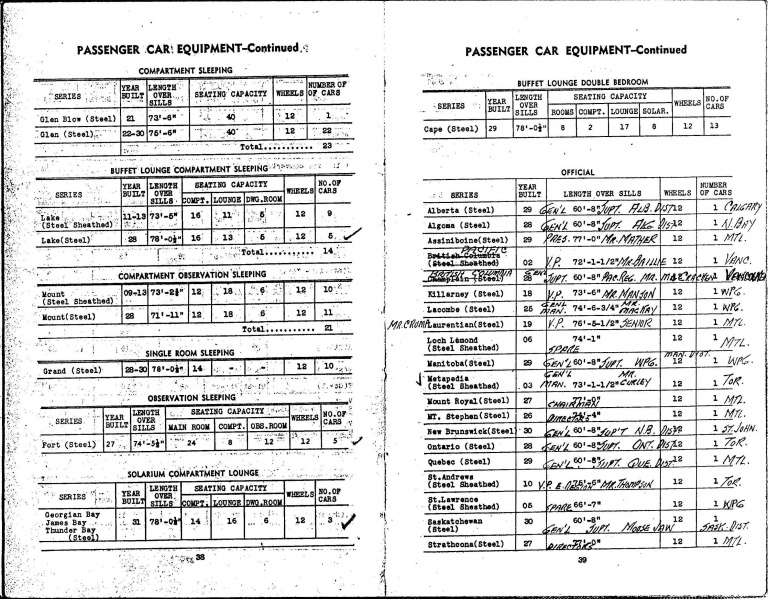 PASSENGER CAR EQUIPMENT-Continued
COMPARTMENT SLEEPING
SERIES YEAR BUILT LENGTH OVER SILLS SEATING CAPACITY WHEELS NUMBER OF OF CARS
Glen Blow (Steel) 21 73'-6" 40 12 1
Glen (Steel) 22-30 75'-6" 40 12 22
Total........... 23
BUFFET LOUNGE COMPARTMENT SLEEPING
SERIES YEAR BUILT LENGTH OVER SILLS SEATING CAPACITY COMPT. LOUNGE DWG.ROOM WHEELS NO.OF CARS
Lake (Steel Sheathed) 11-13 73'-5" 16 11 5 12 9
Lake(Steel) 28 78'-0½" 16 13 5 12 5 ✓
Total........... 14
COMPARTMENT OBSERVATION SLEEPING
Mount (Steel Sheathed) 09-13 73'-2½" 12 18 6 12 10
Mount(Steel) 28 71'-11" 12 18 6 12 11
Total........... 21
SINGLE ROOM SLEEPING
Grand (Steel) 28-30 78'-0½" 14 - - 12 10
OBSERVATION SLEEPING
SERIES YEAR BUILT LENGTH OVER SILLS SEATING CAPACITY MAIN ROOM COMPT. OBS.ROOM WHEELS NO.OF CARS
Fort (Steel) 27 74'-5½" 24 8 12 12 5 ✓
SOLARIUM COMPARTMENT LOUNGE
SERIES YEAR BUILT LENGTH OVER SILLS SEATING CAPACITY COMPT. LOUNGE DWG.ROOM WHEELS NO.OF CARS
Georgian Bay
James Bay 31 78'-0½" 14 16 6 12 3 ✓
Thunder Bay
(Steel)
38
PASSENGER CAR EQUIPMENT-Continued
BUFFET LOUNGE DOUBLE BEDROOM
SERIES YEAR BUILT LENGTH OVER SILLS SEATING CAPACITY ROOMS COMPT. LOUNGE SOLAR. WHEELS NO.OF CARS
Cape (Steel) 29 78'-0½" 8 2 17 8 12 13
OFFICIAL
SERIES YEAR BUILT LENGTH OVER SILLS WHEELS NUMBER OF CARS
Alberta (Steel) 29 GEN'L 60'-8" SUPT. ALB. DIST 12 1 CALGARY
Algoma (Steel) 28 GEN'L 60'-8" SUPT. ALG DIST 12 1 N. BAY
Assiniboine(Steel) 29 PRES. 77'-0" MR. MATHER 12 1 MTL.
PACIFIC
British Columbia (Steel Sheathed) 02 V.P. 72'-1-1/2" MR. BAILLIE 12 1 VANC.
BRITISH COLUMBIA GEN'L
Champlain (Steel) 28 SUPT. 60'-8" PAC. REG. MR. MACCRACKEN 12 1 VANCOUVER
Killarney (Steel) 18 V.P. 73'-6" MR. MANSON 12 1 WPG.
Lacombe (Steel) 25 GENL MAN. 74'-6-3/4" MR. MACKAY 12 1 WPG.
MR. CRUMP Laurentian(Steel) 19 V.P. 76'-5-1/2" SENIOR 12 1 MTL.
Loch Lomond (Steel Sheathed) 06 74'-1" SPARE 12 1 MTL.
Manitoba(Steel) 29 GEN'L 60'-8" SUPT. WPG. MAN. DIST. 12 1 WPG.
✓ Metapedia (Steel Sheathed) 03 GEN'L MAN. 73'-1-1/2" MR. CURLEY 12 1 TOR.
Mount Royal(Steel) 27 CHAIRMAN 12 1 MTL.
MT. Stephen(Steel) 26 DIRECTORS 12 1 MTL.
New Brunswick(Steel) 30 GEN'L 60'-8" SUP'T N.B. DIST 12 1 ST. JOHN.
Ontario (Steel) 28 GEN'L 60'-8" SUPT. ONT. DIST 12 1 TOR.
Quebec (Steel) 29 GEN'L 60'-8" SUPT. QUE. DIST. 12 1 MTL.
St.Andrews (Steel Sheathed) 10 V.P. MR. THOMPSON 12 1 TOR.
St.Lawrence (Steel Sheathed) 05 SPARE 66'-7" 12 1 WPG
Saskatchewan (Steel) 30 60'-8" GEN'L SUPT. MOOSE JAW 12 1 SASK. DIST.
Strathcona(Steel) 27 DIRECTORS 12 1 MTL.
39